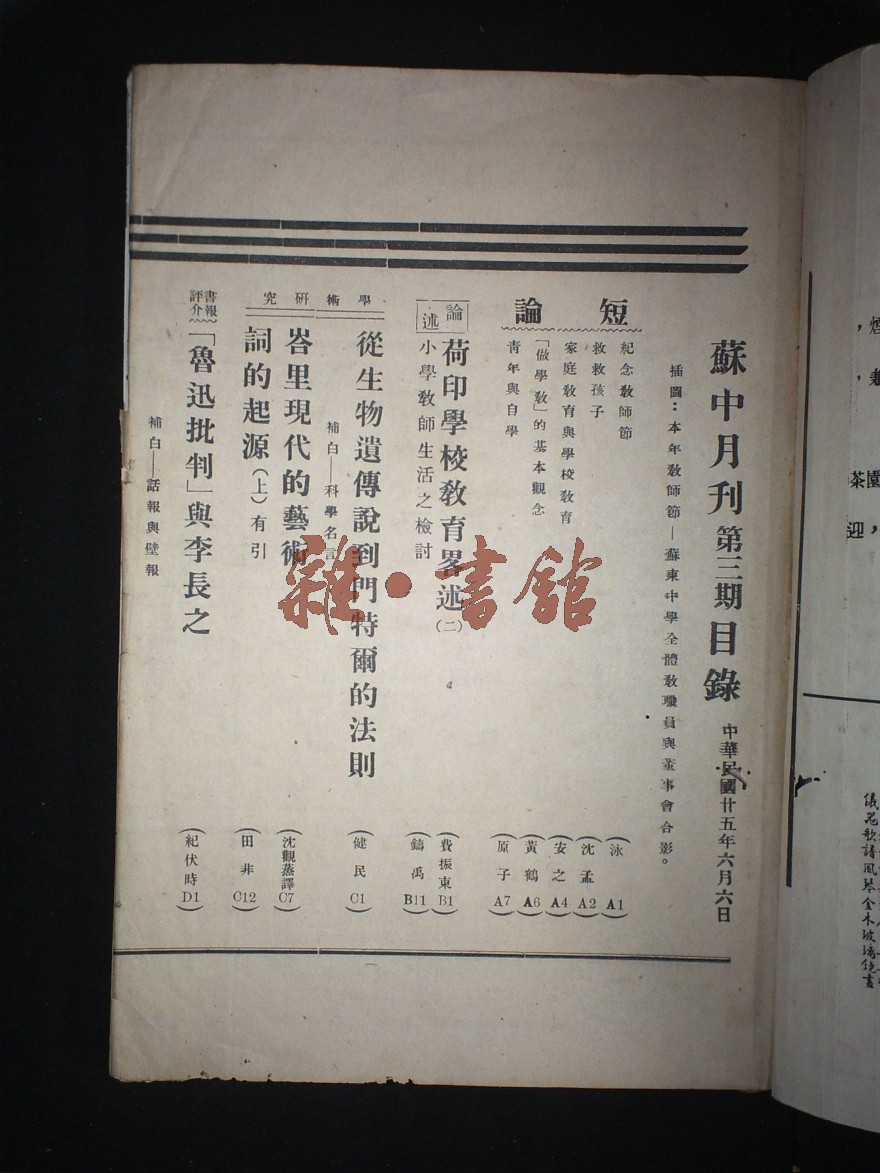 蘇中月刊 第三期 目錄 中華民國廿五年六月六日
插圖：本年教師節—蘇東中學全體教職員與董事會合影。
短論
紀念教師節 （泳 A1）
救救孩子 （沈孟 A2）
家庭教育與學校教育 （安之 A4）
「做學教」的基本觀念 （黃鶴 A6）
青年與自學 （原子 A7）
論述
荷印學校教育畧述（二） （費振東 B1）
小學教師生活之檢討 （鑄禹 B11）
學術研究
從生物遺傳說到門特爾的法則 （健民 C1）
補白—科學名言
峇里現代的藝術 （沈觀蒸譯 C7）
詞的起源（上）有引 （田非 C12）
書報評介
「魯迅批判」與李長之 （紀伏時 D1）
補白—話報與壁報
雜·書館
煙
，
，
園，
茶
迎